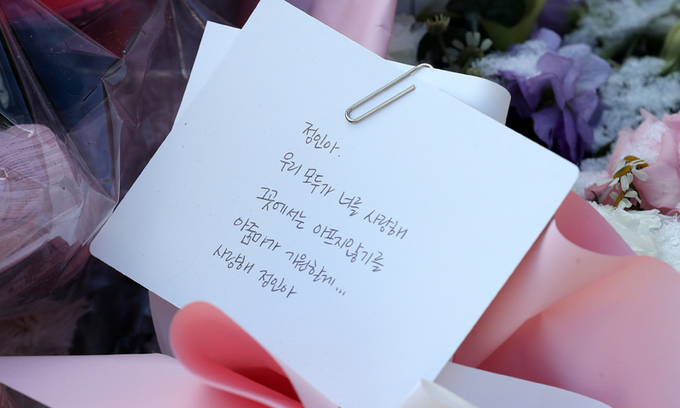 정인아.
우리 모두가 너를 사랑해
그곳에서는 아프지않기를
아줌마가 기원할게...
사랑해 정인아